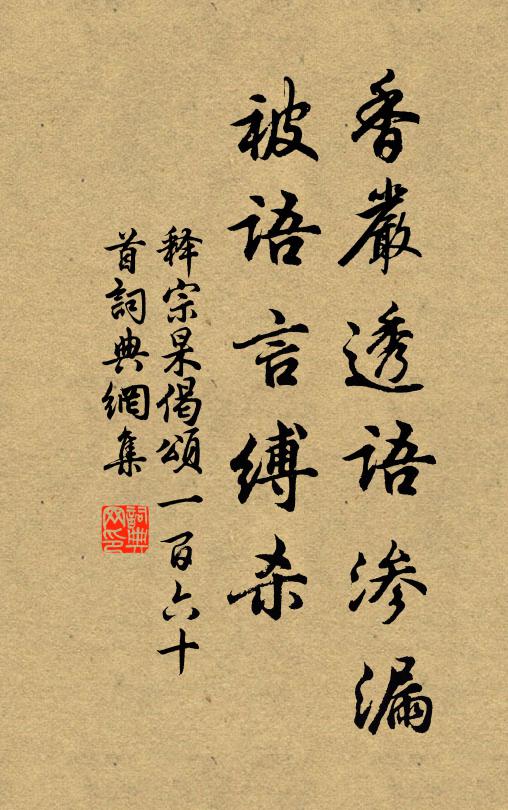 香嚴透語滲漏
被語言縛杀
释宗杲偈頌一百六十
首詞典網集
詞典網印